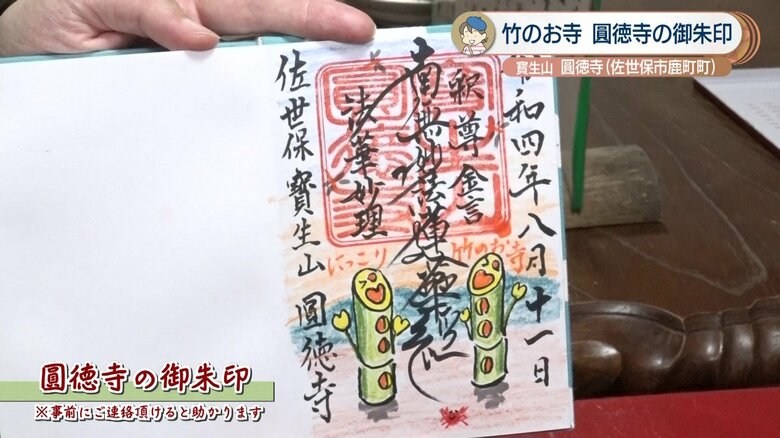 竹のお寺 圓徳寺の御朱印
寳生山 圓徳寺(佐世保市鹿町町)
令和四年八月十一日
釈尊金言
南無妙法蓮華経
法華妙理
佐世保 寳生山 圓徳寺
にっこり
竹のお寺
圓徳寺の御朱印
※事前にご連絡頂けると助かります